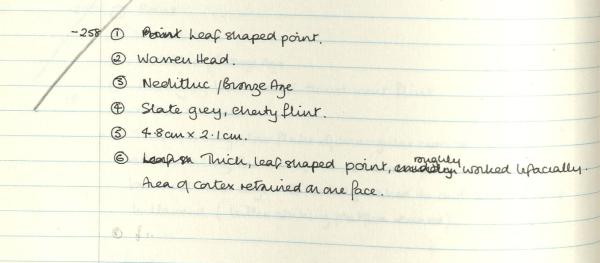 -258 ① Leaf shaped point.
② Warren Head.
③ Neolithic / Bronze Age
④ Slate grey, cherty flint.
⑤ 4.8cm x 2.1cm.
⑥ Thick, leaf shaped point, roughly worked bifacially.
Area of cortex retained on one face.